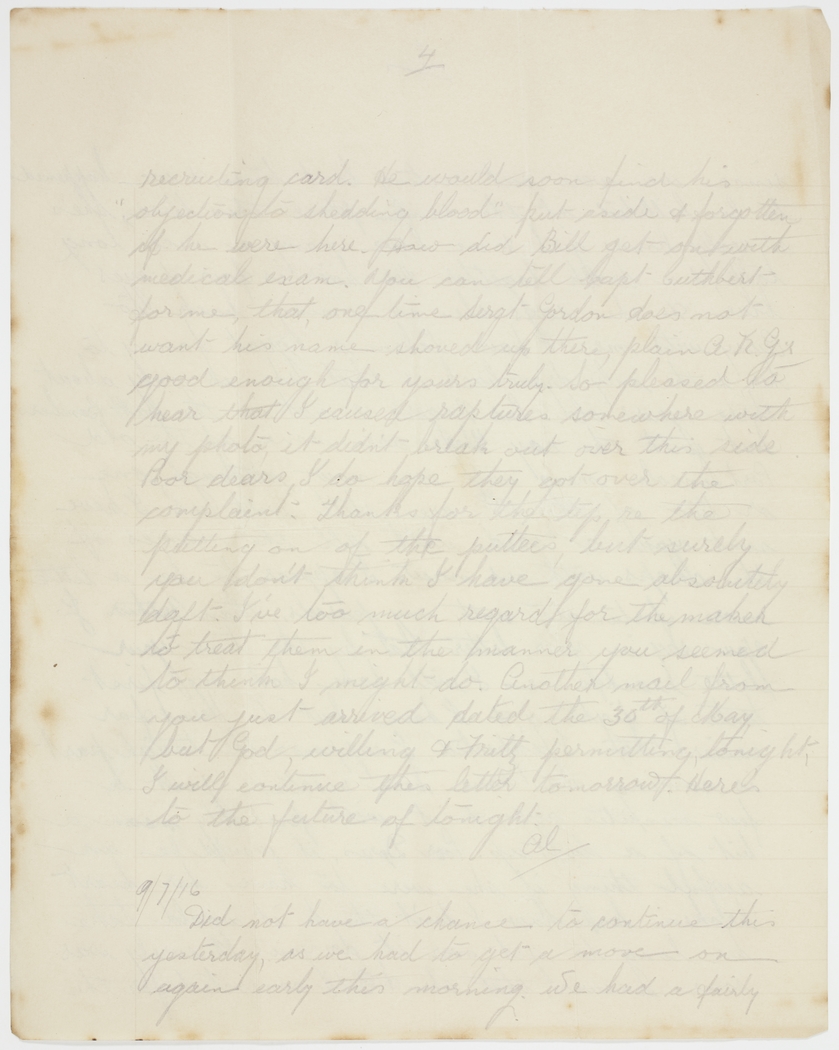 4
recruiting card. He would soon find his
"objection to shedding blood" put aside & forgotten
if he were here. How did Bill get on with
medical exam. You can tell Capt Cuthbert
for me, that, one time Sergt Gordon does not
want his name shoved up there, plain A. K. G's
good enough for yours truly. So pleased to
hear that I caused raptures somewhere with
my photo, it didn't break out over this side
Poor dears, I do hope they got over the
complaint. Thanks for the tip re the
putting on of the puttees, but surely
you don't think I have gone absolutely
daft. I've too much regard for the maker
to treat them in the manner you seemed
to think I might do. Another mail from
you just arrived dated the 30th of May
but God, willing & Fritz permitting, tonight,
I will continue this letter tomorrow. Here's
to the future of tonight.
Al
9/7/16
Did not have a chance to continue this
yesterday, as we had to get a move on
again early this morning. We had a fairly